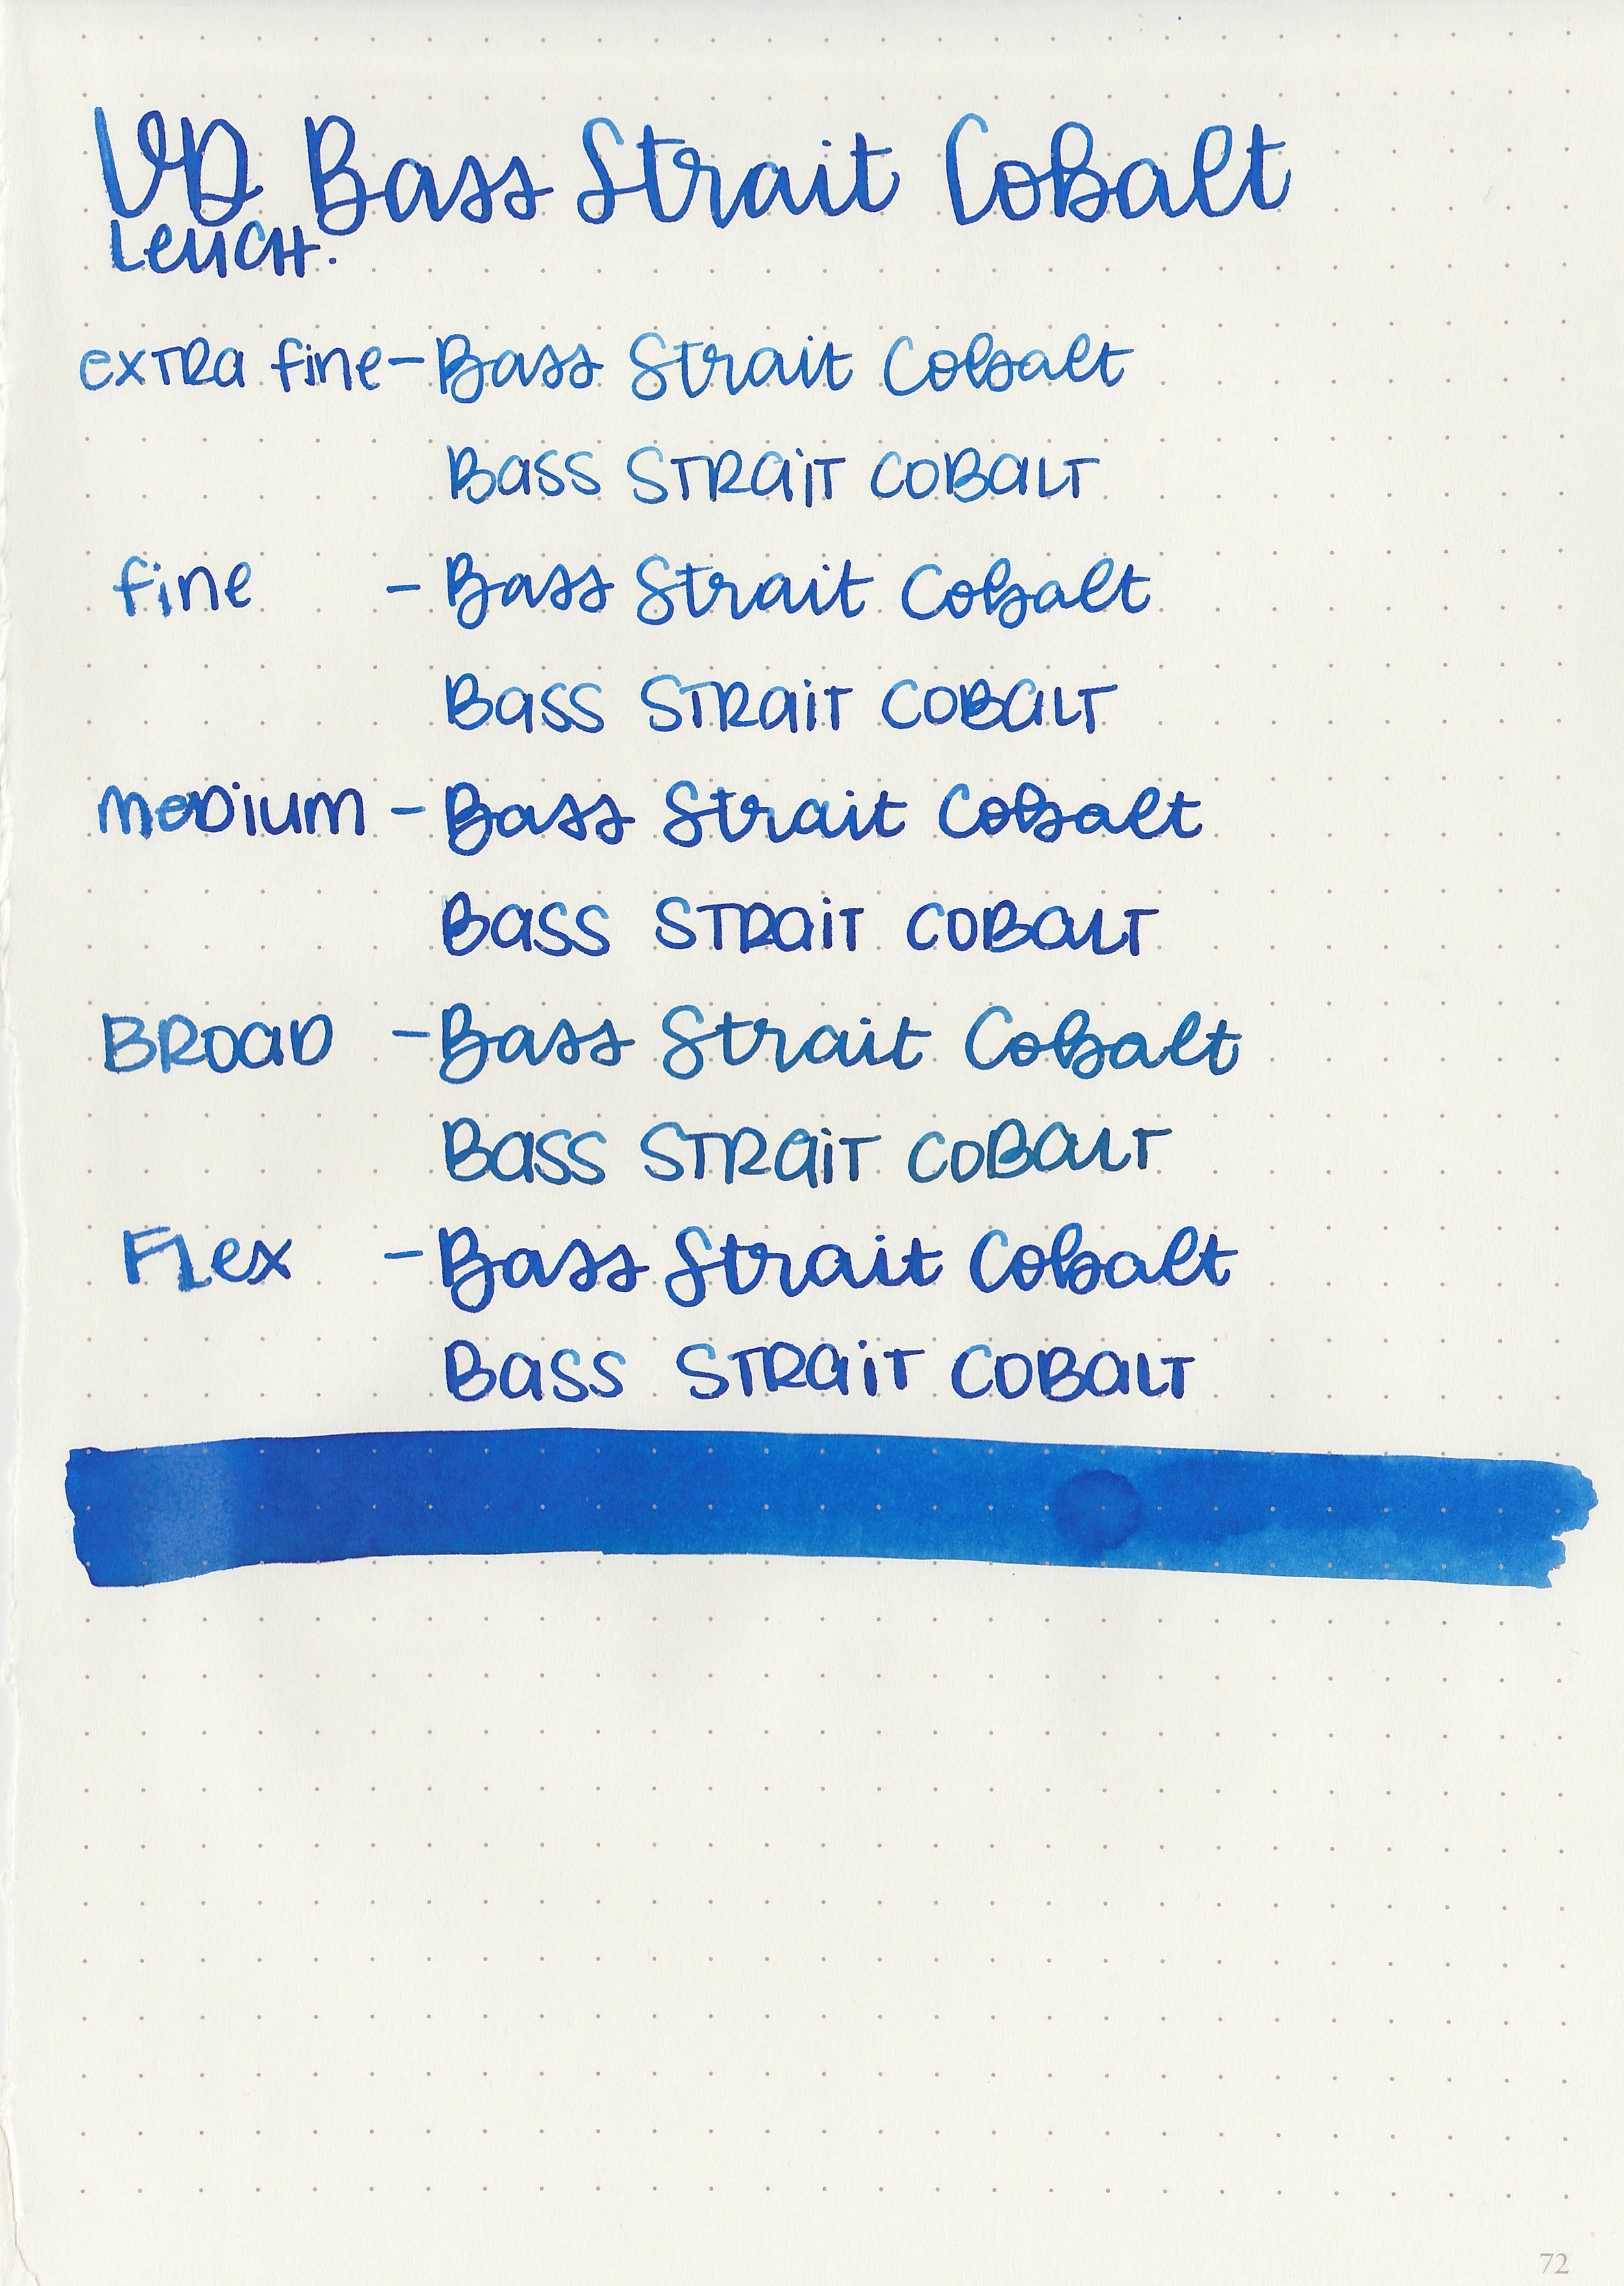 VD Bass Strait Cobalt
Leuch.
extra fine - Bass Strait Cobalt
BASS STRAIT COBALT
fine - Bass Strait Cobalt
BASS STRAIT COBALT
medium - Bass Strait Cobalt
BASS STRAIT COBALT
BROAD - Bass Strait Cobalt
BASS STRAIT COBALT
Flex - Bass Strait Cobalt
BASS STRAIT COBALT
72